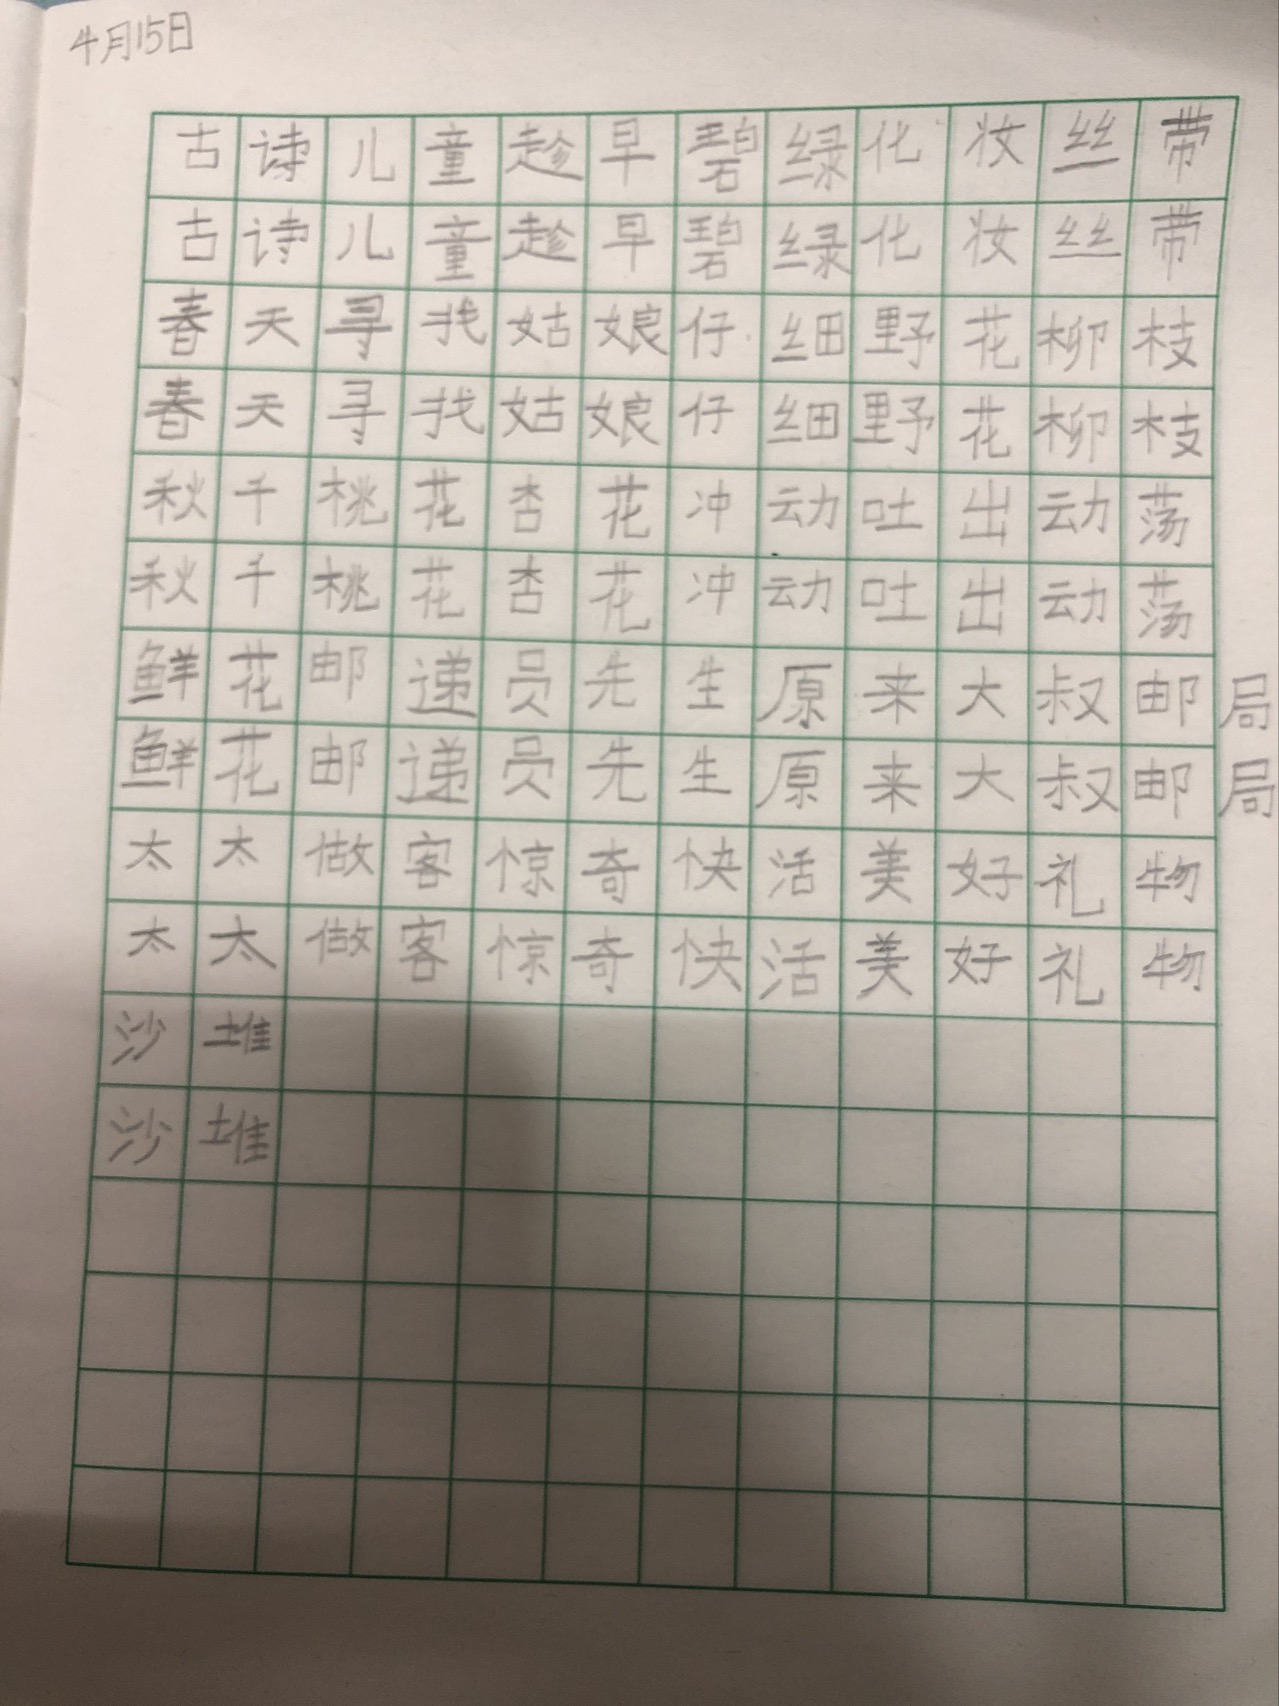 4月15日
古诗儿童趁早碧绿化妆丝带
古诗儿童趁早碧绿化妆丝带
春天寻找姑娘仔细野花柳枝
春天寻找姑娘仔细野花柳枝
秋千桃花杏花冲动吐出动荡
秋千桃花杏花冲动吐出动荡
鲜花邮递员先生原来大叔邮局
鲜花邮递员先生原来大叔邮局
太太做客惊奇快活美好礼物
太太做客惊奇快活美好礼物
沙堆
沙堆